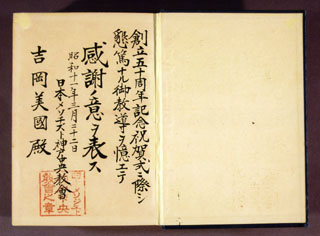 創立五十周年記念祝賀式ニ際シ
懇篤ナル御教導ヲ憶エテ
感謝ノ意ヲ表ス
昭和十一年三月二十二日
日本メソヂスト神戸中央教會
吉岡美國殿